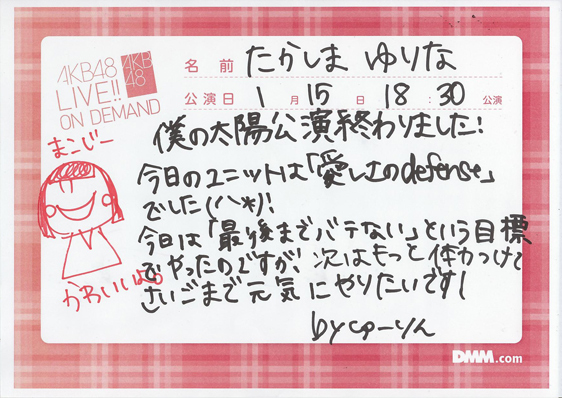 AKB48
LIVE!!
ON DEMAND
AKB
48
名前 たかしま ゆりな
公演日 1月15日 18:30公演
僕の太陽公演終わりました!
まこじー
今日のユニットは「愛しさのdefense」
でした(^^*)!
今日は「最後までバテない」という目標
でやったのですが! 次はもっと体力つけて
さいごまで元気にやりたいです!
かわいいよ。
by
DMM.com